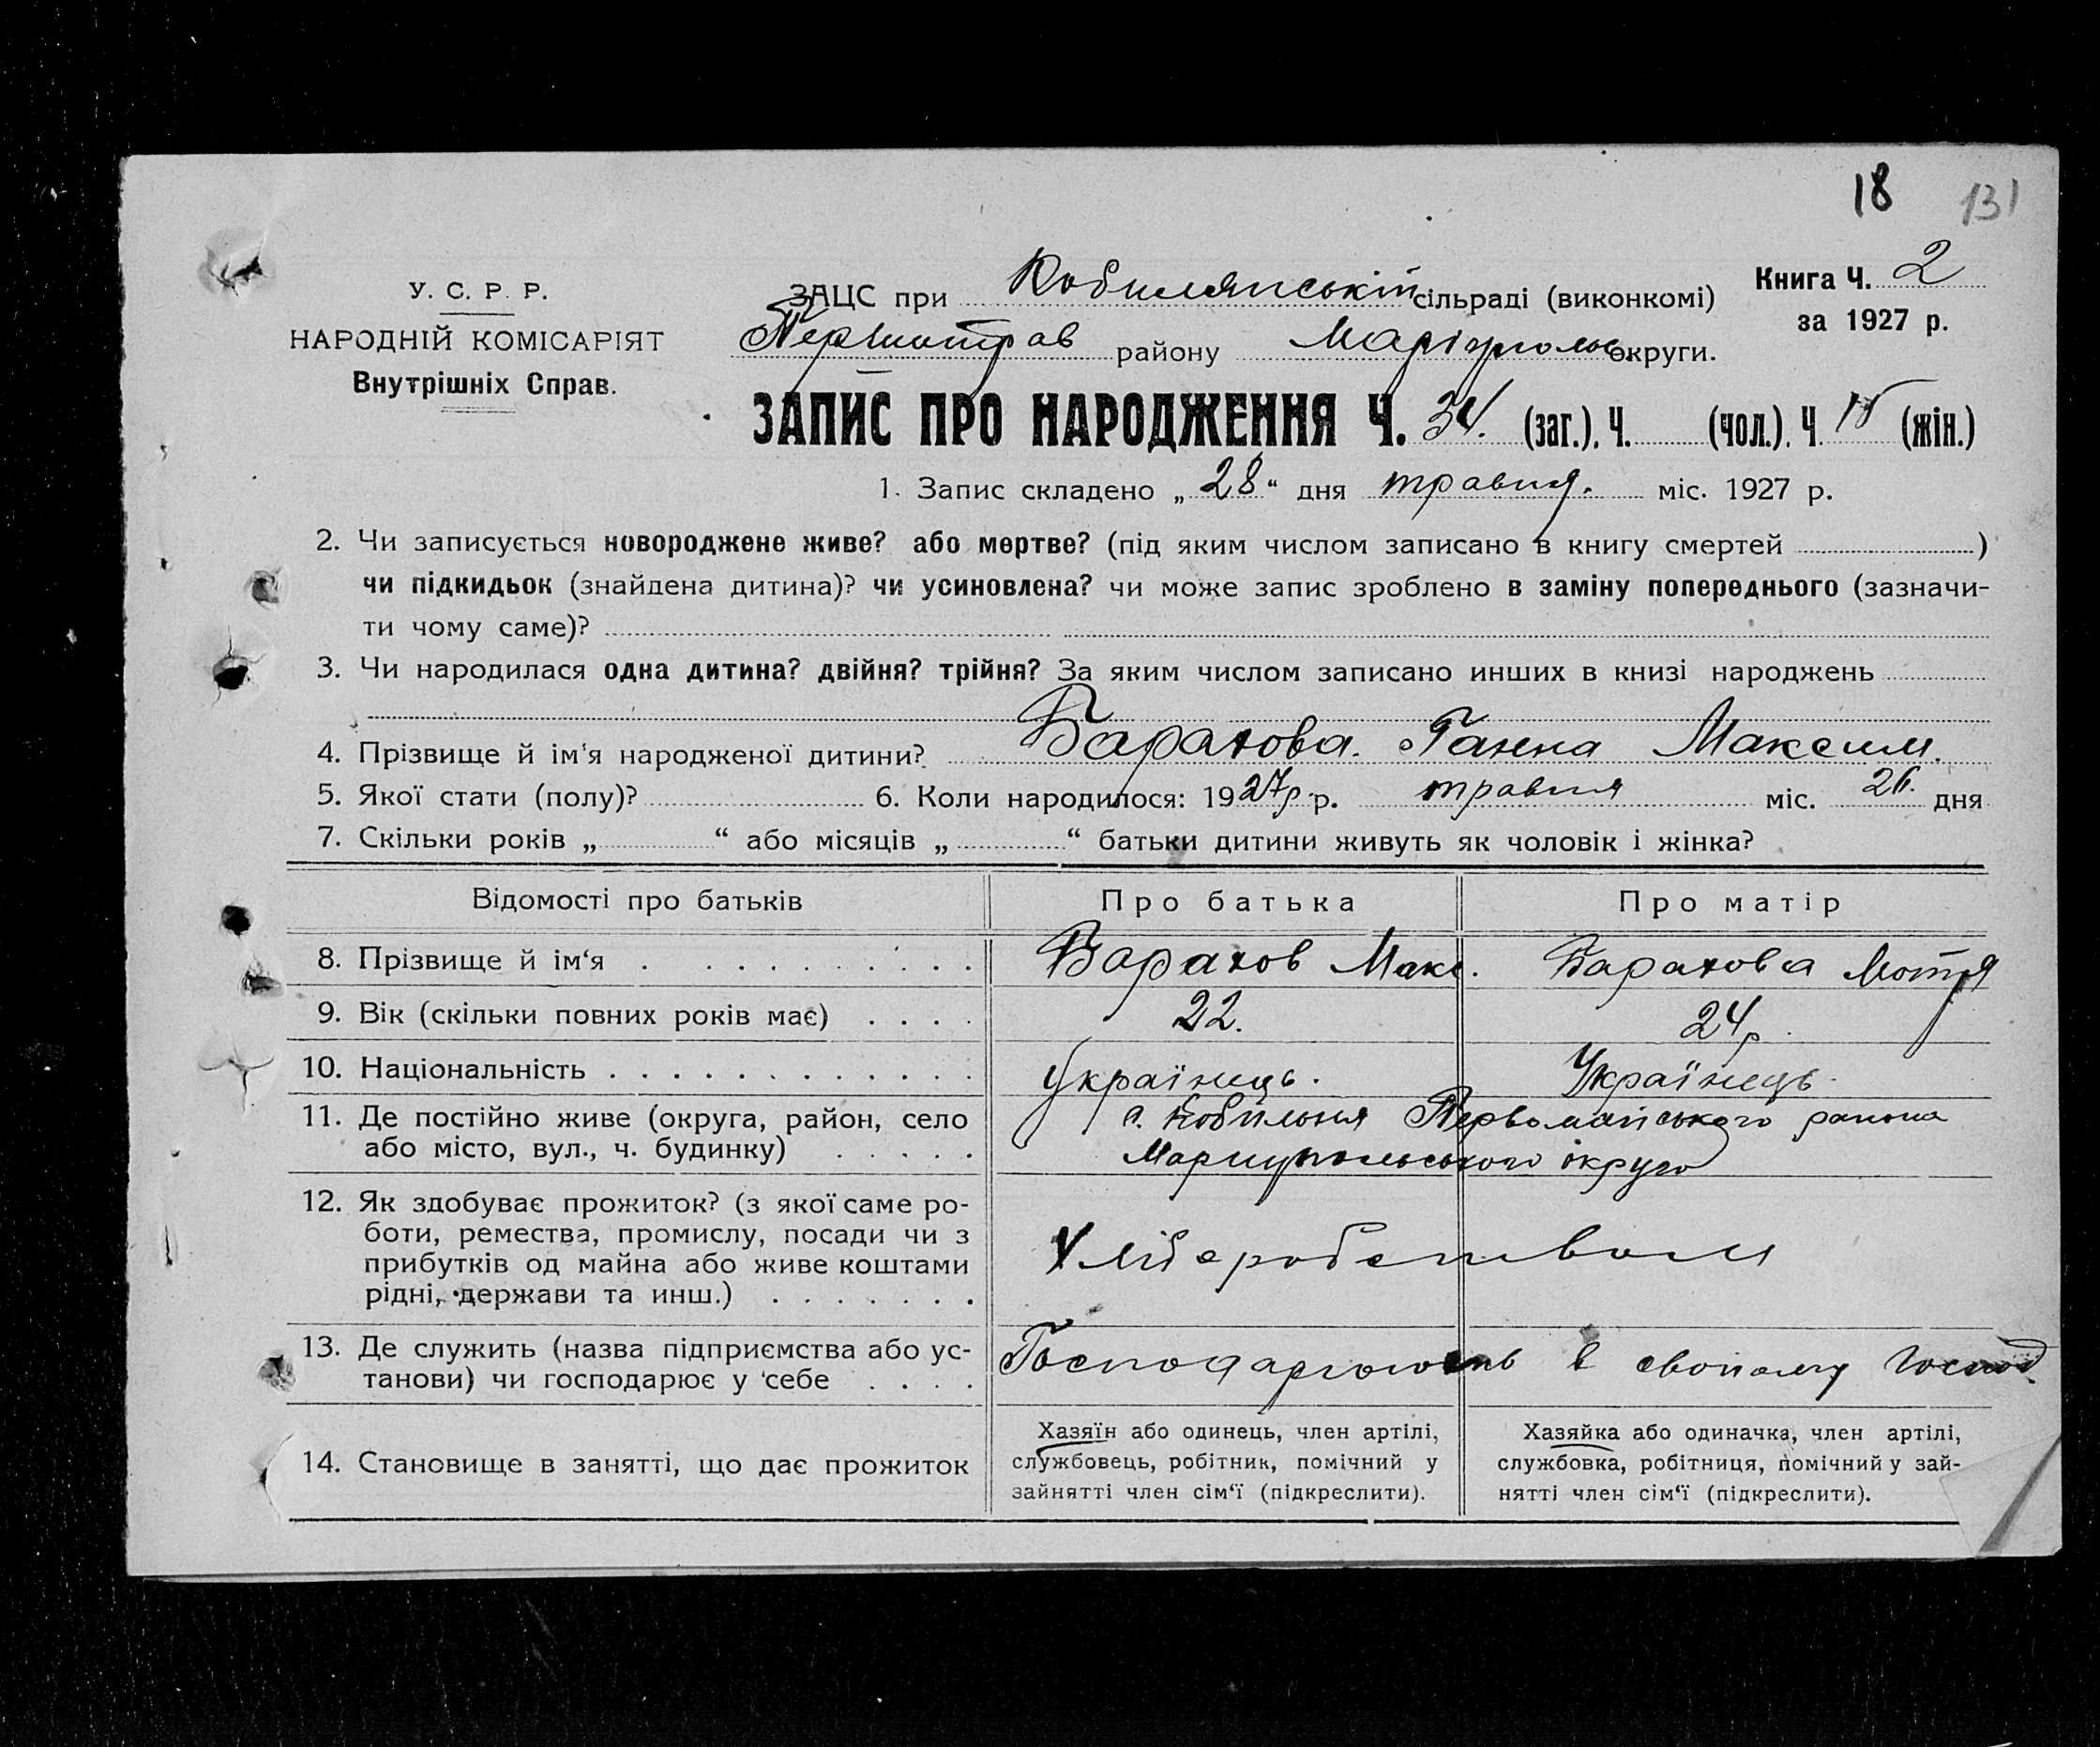 18 131
У. С. Р. Р.
НАРОДНІЙ КОМІСАРІЯТ
Внутрішніх Справ.
ЗАЦС при Кобилянській сільраді (виконкомі)
Книга Ч. 2
за 1927 р.
району Маріюполь округи.
ЗАПИС ПРО НАРОДЖЕННЯ Ч. 34. (заг.). Ч. (чол.). Ч. (жін.)
1. Запис складено „28“ дня травня. міс. 1927 р.
2. Чи записується новороджене живе? або мертве? (під яким числом записано в книгу смертей )
чи підкидьок (знайдена дитина)? чи усиновлена? чи може запис зроблено в заміну попереднього (зазначи-
ти чому саме)?
3. Чи народилася одна дитина? двійня? трійня? За яким числом записано инших в книзі народжень
4. Прізвище й ім‘я народженої дитини? Барахова. Ганна Максим.
5. Якої стати (полу)? 6. Коли народилося: 1927р. р. травня міс. 26. дня
7. Скільки років „ “ або місяців „ “ батьки дитини живуть як чоловік і жінка?
Відомості про батьків Про батька Про матір
8. Прізвище й ім‘я Барахов Макс. Барахова Мотря
9. Вік (скільки повних років має) 22. 24р.
10. Національність Українець. Українець.
11. Де постійно живе (округа, район, село
або місто, вул., ч. будинку)
с. Кобильня Первомайського района
Мариупольського округо
12. Як здобуває прожиток? (з якої саме ро-
боти, ремества, промислу, посади чи з
прибутків од майна або живе коштами
рідні, держави та инш.)
Хлібаробством
13. Де служить (назва підприємства або ус-
танови) чи господарює у себе
Господарюють в свойому Господ.
14. Становище в занятті, що дає прожиток
Хазяїн або одинець, член артілі,
службовець, робітник, помічний у
зайнятті член сім‘ї (підкреслити).
Хазяйка або одиначка, член артілі,
службовка, робітниця, помічний у зай-
нятті член сім‘ї (підкреслити).